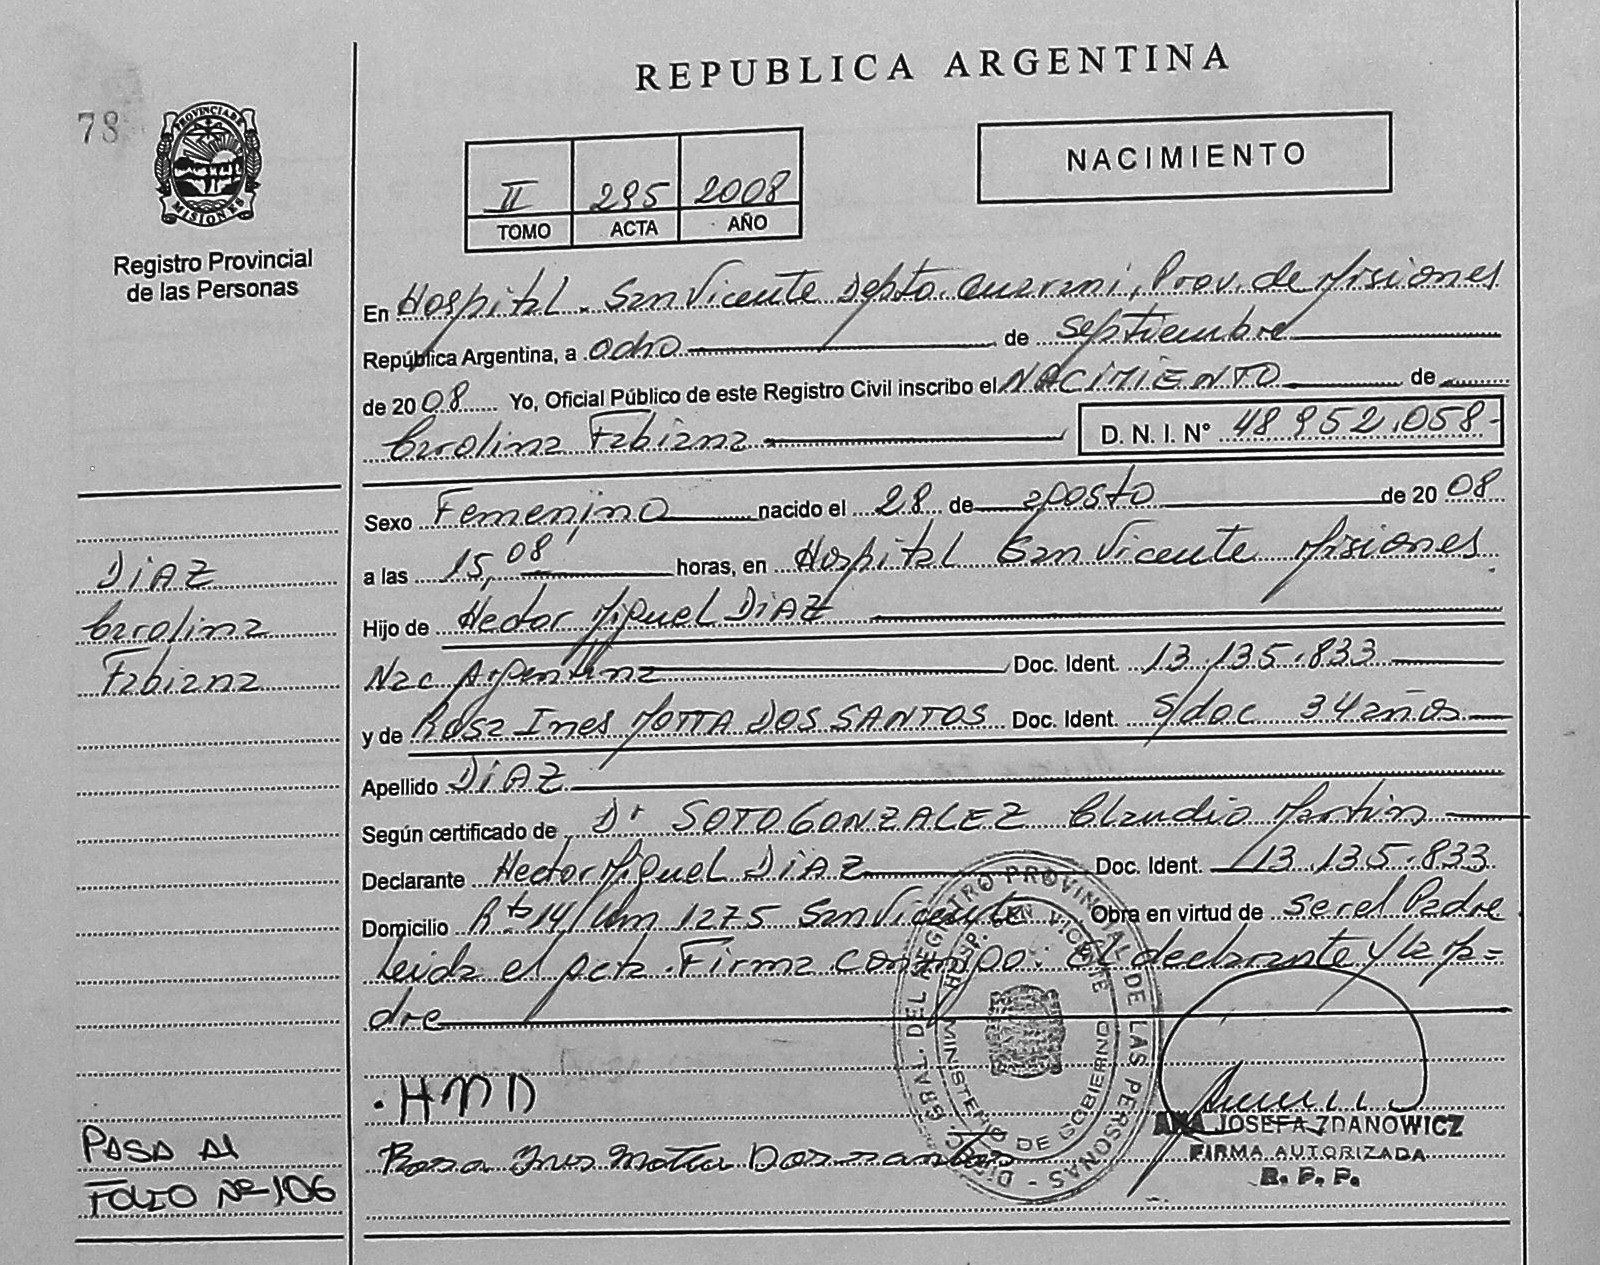 REPUBLICA ARGENTINA
78
PROVINCIA DE
MISIONES
Registro Provincial
de las Personas
NACIMIENTO
II 295 2008
TOMO ACTA AÑO
En Hospital. San Vicente Depto. Guarani, Prov. de Misiones
República Argentina, a ocho de septiembre
de 2008 Yo, Oficial Público de este Registro Civil inscribo el NACIMIENTO de
Carolina Fabiana D. N. I. N° 48 952.058-
Sexo Femenino nacido el 28 de agosto de 2008
a las 15,08 horas, en Hospital San Vicente Misiones
Hijo de Hector Miguel DiAZ
Nac Argentina Doc. Ident. 13.135.833
y de Rosa Ines MOTTA DOS SANTOS Doc. Ident. S/doc 34 años
Apellido DiAZ
Según certificado de Dr SOTO GONZALEZ Claudio Martin
Declarante Hector Miguel DiAZ Doc. Ident. 13.135.833
Domicilio Rta 14/Km 1275 San Vicente Obra en virtud de ser el Padre
Leida el acta. Firma conmigo: El declarante y la ma=
dre
DiAZ
Carolina
Fabiana
PASA Al
FOLIO Nº 106
.HMD
Rosa Ines Motta Dos santos
DIREC. GRAL. DEL REGISTRO PROVINCIAL DE LAS PERSONAS -
HOSP. SAN VICENTE
MINISTERIO DE GOBIERNO
ANA JOSEFA ZDANOWICZ
FIRMA AUTORIZADA
R. P. P.